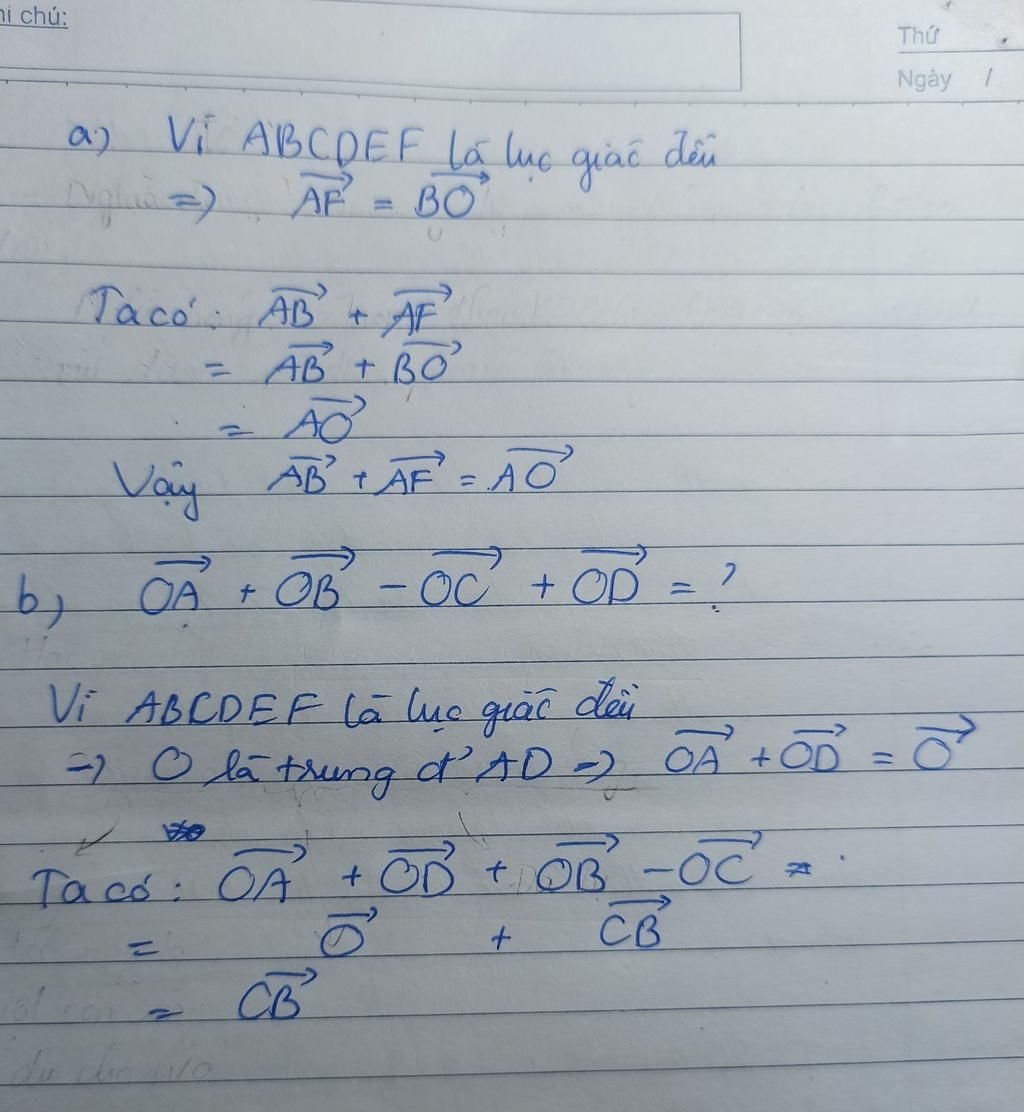 hi chú:
Thứ
Ngày /
a) Vì ABCDEF là lục giác đều
=> \overrightarrow{AF} = \overrightarrow{BO}
Ta có: \overrightarrow{AB} + \overrightarrow{AF}
= \overrightarrow{AB} + \overrightarrow{BO}
= \overrightarrow{AO}
Vậy \overrightarrow{AB} + \overrightarrow{AF} = \overrightarrow{AO}
b, \overrightarrow{OA} + \overrightarrow{OB} - \overrightarrow{OC} + \overrightarrow{OD} = ?
Vì ABCDEF là lục giác đều
=> O là trung đ' AD => \overrightarrow{OA} + \overrightarrow{OD} = \overrightarrow{O}
Ta có: \overrightarrow{OA} + \overrightarrow{OD} + \overrightarrow{OB} - \overrightarrow{OC} =
= \overrightarrow{O} + \overrightarrow{CB}
= \overrightarrow{CB}